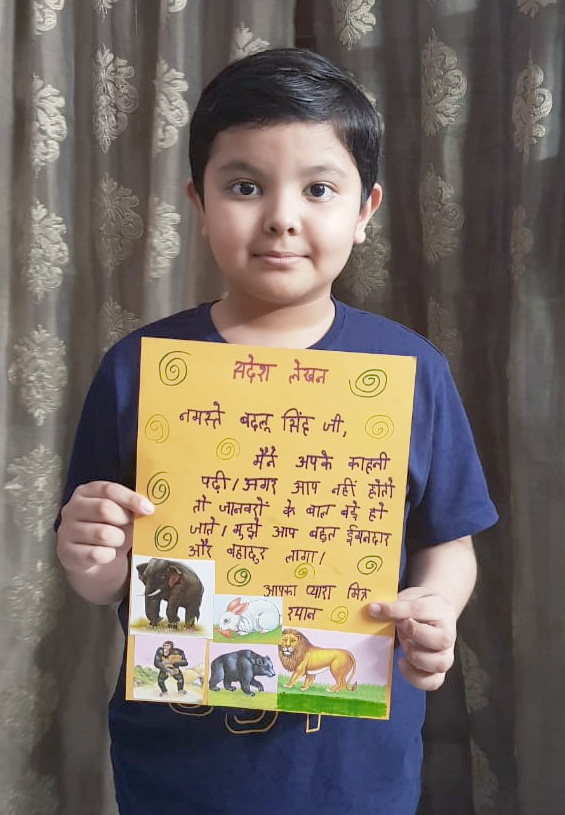 सदेश लेखन
नमस्ते बदलू सिंह जी,
मैने अपके काहनी
पढ़ी। अगर आप नहीं होतो
तो जानवरों के बाल बड़े हो
जाते। मुझे आप बहुत ईमनदार
और बहादुर लागा।
आपका प्यारा मित्र
रयान